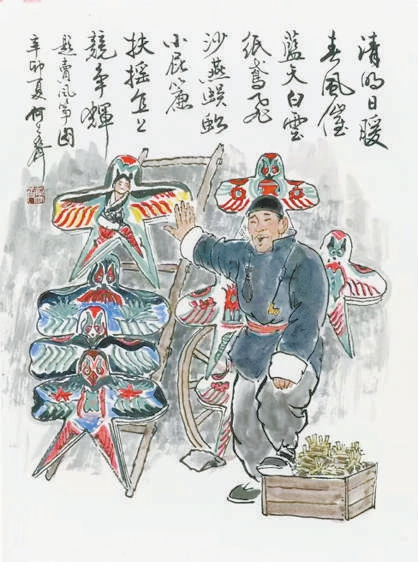 清明日暖
春風催
藍天白雲
紙鳶飛
沙燕蜈蚣
小屁簾
扶摇直上
競争輝
題賣風箏圖
辛卯夏何大齊